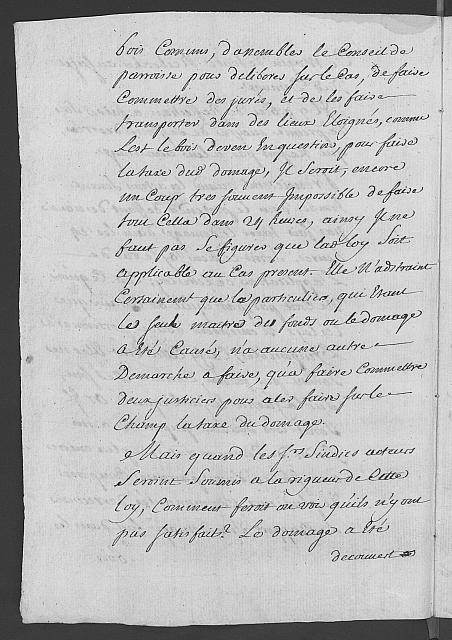 bois Comuns, d'assembler le Conseil de
parroisse pour deliberer sur le Cas, de faire
Commettre des jurés, et de les faire
transporter dans des lieux Eloignés, comme
L'est le bois deven En question, pour faire
la taxe dud domage, Il seroit, encore
un Coup, tres souvent Impossible de faire
tout Cella dans 24 heures, ainsy Il ne
faut pas se figurer que lad loy soit
applicable au Cas present. Elle N'adstraint
Certainement que les particuliers, qui Etant
les seuls maitres des fonds ou le domage
a Eté Causé, n'a aucune autre
Demarche a faire, qu'a faire Commettre
deux justiciers pour aler faire sur le
Champ la taxe du domage.
Mais quand les srs Sindics acteurs
Seroint Soumis a la rigueur de Cette
loy, Comment feroit on voir qu'ils n'y ont
pas satisfait? Le domage a Eté
decouvert